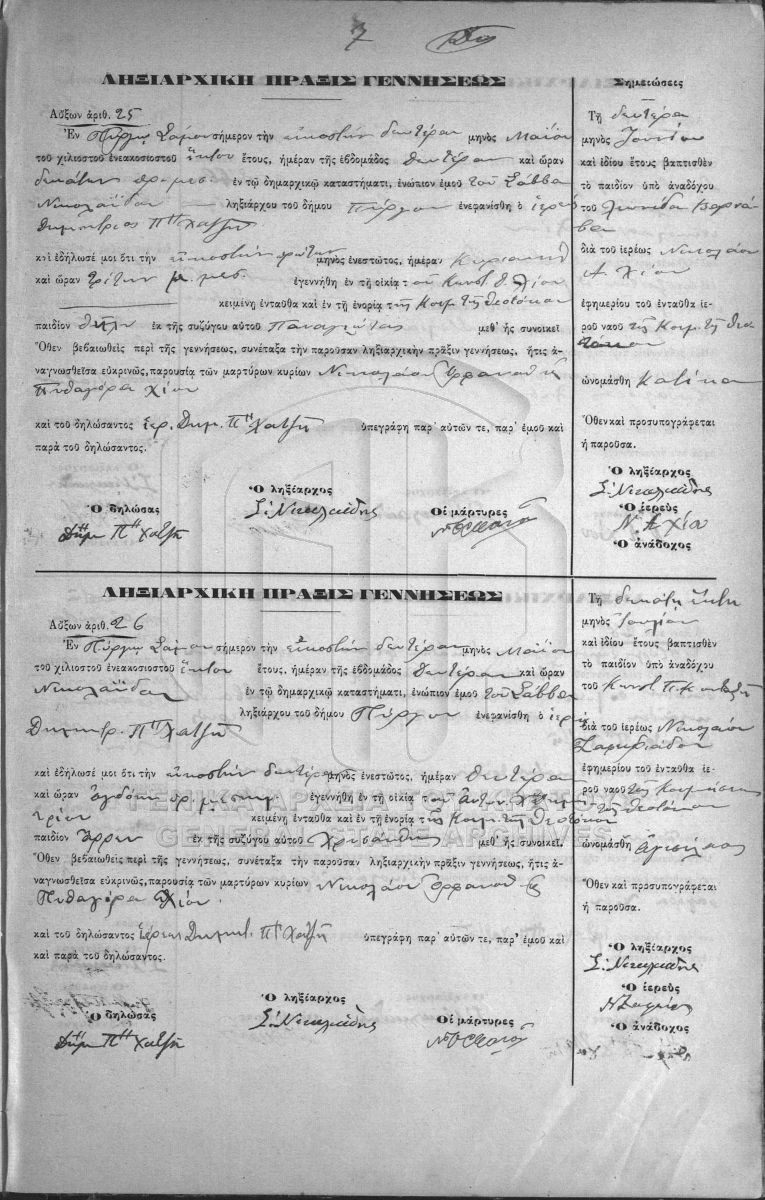 7
ΛΗΞΙΑΡΧΙΚΗ ΠΡΑΞΙΣ ΓΕΝΝΗΣΕΩΣ
Αὔξων ἀριθ. 25
Ἐν Πύργῳ Σάμου σήμερον τὴν εἰκοστὴν δευτέραν μηνὸς Μαΐου
τοῦ χιλιοστοῦ ἐνεακοσιοστοῦ ἕκτου ἔτους, ἡμέραν τῆς ἑβδομάδος Δευτέραν καὶ ὥραν
δεκάτην π.μεσ. ἐν τῷ δημαρχικῷ καταστήματι, ἐνώπιον ἐμοῦ τοῦ Σάββα
Νικολαΐδου ληξιάρχου τοῦ δήμου Πύργου ἐνεφανίσθη ὁ ἱερεὺς
Δημήτριος Ππ Χατζῆ
καὶ ἐδήλωσέ μοι ὅτι τὴν εἰκοστὴν πρώτην μηνὸς ἐνεστῶτος, ἡμέραν Κυριακὴν
καὶ ὥραν τρίτην μ. μεσ. ἐγεννήθη ἐν τῇ οἰκίᾳ τοῦ Κωνστ.
κειμένῃ ἐνταῦθα καὶ ἐν τῇ ἐνορίᾳ τῆς Κοιμ. τῆς Θεοτόκου
παιδίον θῆλυ ἐκ τῆς συζύγου αὐτοῦ Παναγιώτας μεθ' ἧς συνοικεῖ
Ὅθεν βεβαιωθεὶς περὶ τῆς γεννήσεως, συνέταξα τὴν παροῦσαν ληξιαρχικὴν πρᾶξιν γεννήσεως, ἥτις ἀ-
ναγνωσθεῖσα εὐκρινῶς, παρουσίᾳ τῶν μαρτύρων κυρίων Νικολάου Ὀρφανοῦ &
Πυθαγόρα Χίου
καὶ τοῦ δηλώσαντος ἱερ. Δημ. Ππ Χατζῆ ὑπεγράφη παρ' αὐτῶν τε, παρ' ἐμοῦ καὶ
παρὰ τοῦ δηλώσαντος.
Ὁ δηλώσας
Δημ Ππ Χατζῆ
Ὁ ληξίαρχος
Σ. Νικολαΐδης
Οἱ μάρτυρες
Σημειώσεις
Τῇ δευτέρᾳ
μηνὸς Ἰουνίου
καὶ ἰδίου ἔτους βαπτισθὲν
τὸ παιδίον ὑπὸ ἀναδόχου
τοῦ Λεωνίδα Βαρνά-
βα
διὰ τοῦ ἱερέως Νικολάου
Χίου
ἐφημερίου τοῦ ἐνταῦθα ἱε-
ροῦ ναοῦ τῆς Κοιμ. τῆς Θεο-
τόκου
ὠνομάσθη Κατίνα
Ὅθεν καὶ προσυπογράφεται
ἡ παροῦσα.
Ὁ ληξίαρχος
Σ. Νικολαΐδης
Ὁ ἱερεὺς
Ὁ ἀνάδοχος
ΛΗΞΙΑΡΧΙΚΗ ΠΡΑΞΙΣ ΓΕΝΝΗΣΕΩΣ
Αὔξων ἀριθ. 26
Ἐν Πύργῳ Σάμου σήμερον τὴν εἰκοστὴν δευτέραν μηνὸς Μαΐου
τοῦ χιλιοστοῦ ἐνεακοσιοστοῦ ἕκτου ἔτους, ἡμέραν τῆς ἑβδομάδος Δευτέραν καὶ ὥραν
ἐν τῷ δημαρχικῷ καταστήματι, ἐνώπιον ἐμοῦ τοῦ Σάββα
Νικολαΐδου ληξιάρχου τοῦ δήμου Πύργου ἐνεφανίσθη ὁ ἱερεὺς
Δημητρ. Ππ Χατζῆ
καὶ ἐδήλωσέ μοι ὅτι τὴν εἰκοστὴν δευτέραν μηνὸς ἐνεστῶτος, ἡμέραν Δευτέραν
καὶ ὥραν ὀγδόην ἐγεννήθη ἐν τῇ οἰκίᾳ τοῦ
κειμένῃ ἐνταῦθα καὶ ἐν τῇ ἐνορίᾳ τῆς Κοιμ. τῆς Θεοτόκου
παιδίον ἄρρεν ἐκ τῆς συζύγου αὐτοῦ Χρυσάνθης μεθ' ἧς συνοικεῖ.
Ὅθεν βεβαιωθεὶς περὶ τῆς γεννήσεως, συνέταξα τὴν παροῦσαν ληξιαρχικὴν πρᾶξιν γεννήσεως, ἥτις ἀ-
ναγνωσθεῖσα εὐκρινῶς, παρουσίᾳ τῶν μαρτύρων κυρίων Νικολάου Ὀρφανοῦ &
Πυθαγόρα Χίου
καὶ τοῦ δηλώσαντος ἱερέως Δημητ. Ππ Χατζῆ ὑπεγράφη παρ' αὐτῶν τε, παρ' ἐμοῦ καὶ
καὶ παρὰ τοῦ δηλώσαντος.
Ὁ δηλώσας
Δημ Ππ Χατζῆ
Ὁ ληξίαρχος
Σ. Νικολαΐδης
Οἱ μάρτυρες
Τῇ δεκάτῃ ἕκτῃ
μηνὸς Ἰουλίου
καὶ ἰδίου ἔτους βαπτισθὲν
τὸ παιδίον ὑπὸ ἀναδόχου
τοῦ Κωνστ.
διὰ τοῦ ἱερέως Νικολάου
Ζαχαριάδου
ἐφημερίου τοῦ ἐνταῦθα ἱε-
ροῦ ναοῦ τῆς Κοιμήσεως
τῆς Θεοτόκου
ὠνομάσθη Ἀγησίλαος
Ὅθεν καὶ προσυπογράφεται
ἡ παροῦσα.
Ὁ ληξίαρχος
Σ. Νικολαΐδης
Ὁ ἱερεὺς
Ὁ ἀνάδοχος
ΓΕΝΙΚΑ ΑΡΧΕΙΑ ΤΟΥ ΚΡΑΤΟΥΣ
GENERAL STATE ARCHIVES